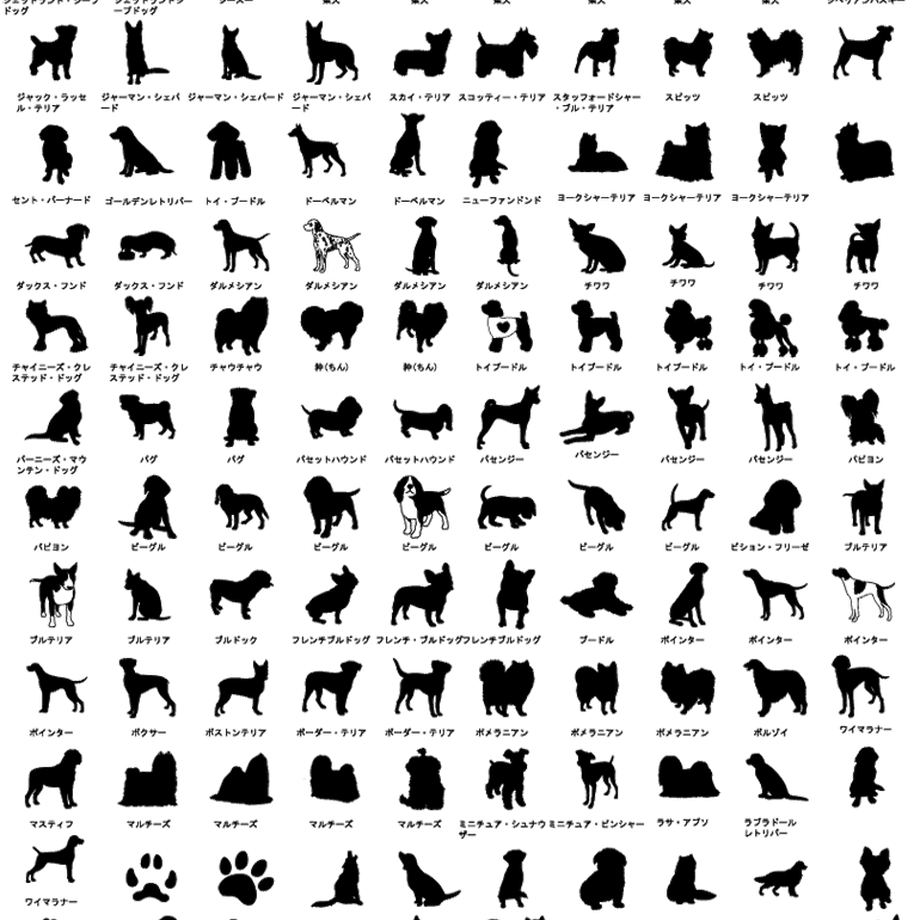 シェットランド・シープ
ドッグ
シェットランドシ
ープドッグ
シーズー
柴犬
柴犬
柴犬
柴犬
柴犬
シベリアンハスキー
ジャック・ラッセ
ル・テリア
ジャーマン・シェパ
ード
ジャーマン・シェパード
ジャーマン・シェパ
ード
スカイ・テリア
スコッティー・テリア
スタッフォードシャー
・ブル・テリア
スピッツ
スピッツ
セント・バーナード
ゴールデンレトリバー
トイ・プードル
ドーベルマン
ドーベルマン
ニューファンドンド
ヨークシャーテリア
ヨークシャーテリア
ヨークシャーテリア
ダックス・フンド
ダックス・フンド
ダルメシアン
ダルメシアン
ダルメシアン
ダルメシアン
チワワ
チワワ
チワワ
チワワ
チャイニーズ・クレ
ステッド・ドッグ
チャイニーズ・クレ
ステッド・ドッグ
チャウチャウ
狆(ちん)
狆(ちん)
トイプードル
トイプードル
トイプードル
トイ・プードル
トイ・プードル
バーニーズ・マウ
ンテン・ドッグ
パグ
パグ
バセットハウンド
バセットハウンド
バセンジー
バセンジー
バセンジー
バセンジー
パピヨン
パピヨン
ビーグル
ビーグル
ビーグル
ビーグル
ビーグル
ビーグル
ビーグル
ビション・フリーゼ
ブルテリア
ブルテリア
ブルテリア
ブルドック
フレンチブルドッグ
フレンチ・ブルドッグ
フレンチブルドッグ
プードル
ポインター
ポインター
ポインター
ポインター
ボクサー
ボストンテリア
ボーダー・テリア
ボーダー・テリア
ポメラニアン
ポメラニアン
ポメラニアン
ボルゾイ
ワイマラナー
マスティフ
マルチーズ
マルチーズ
マルチーズ
マルチーズ
ミニチュア・シュナウ
ザー
ミニチュア・ピンシャー
ラサ・アプソ
ラブラドール
レトリバー
ワイマラナー